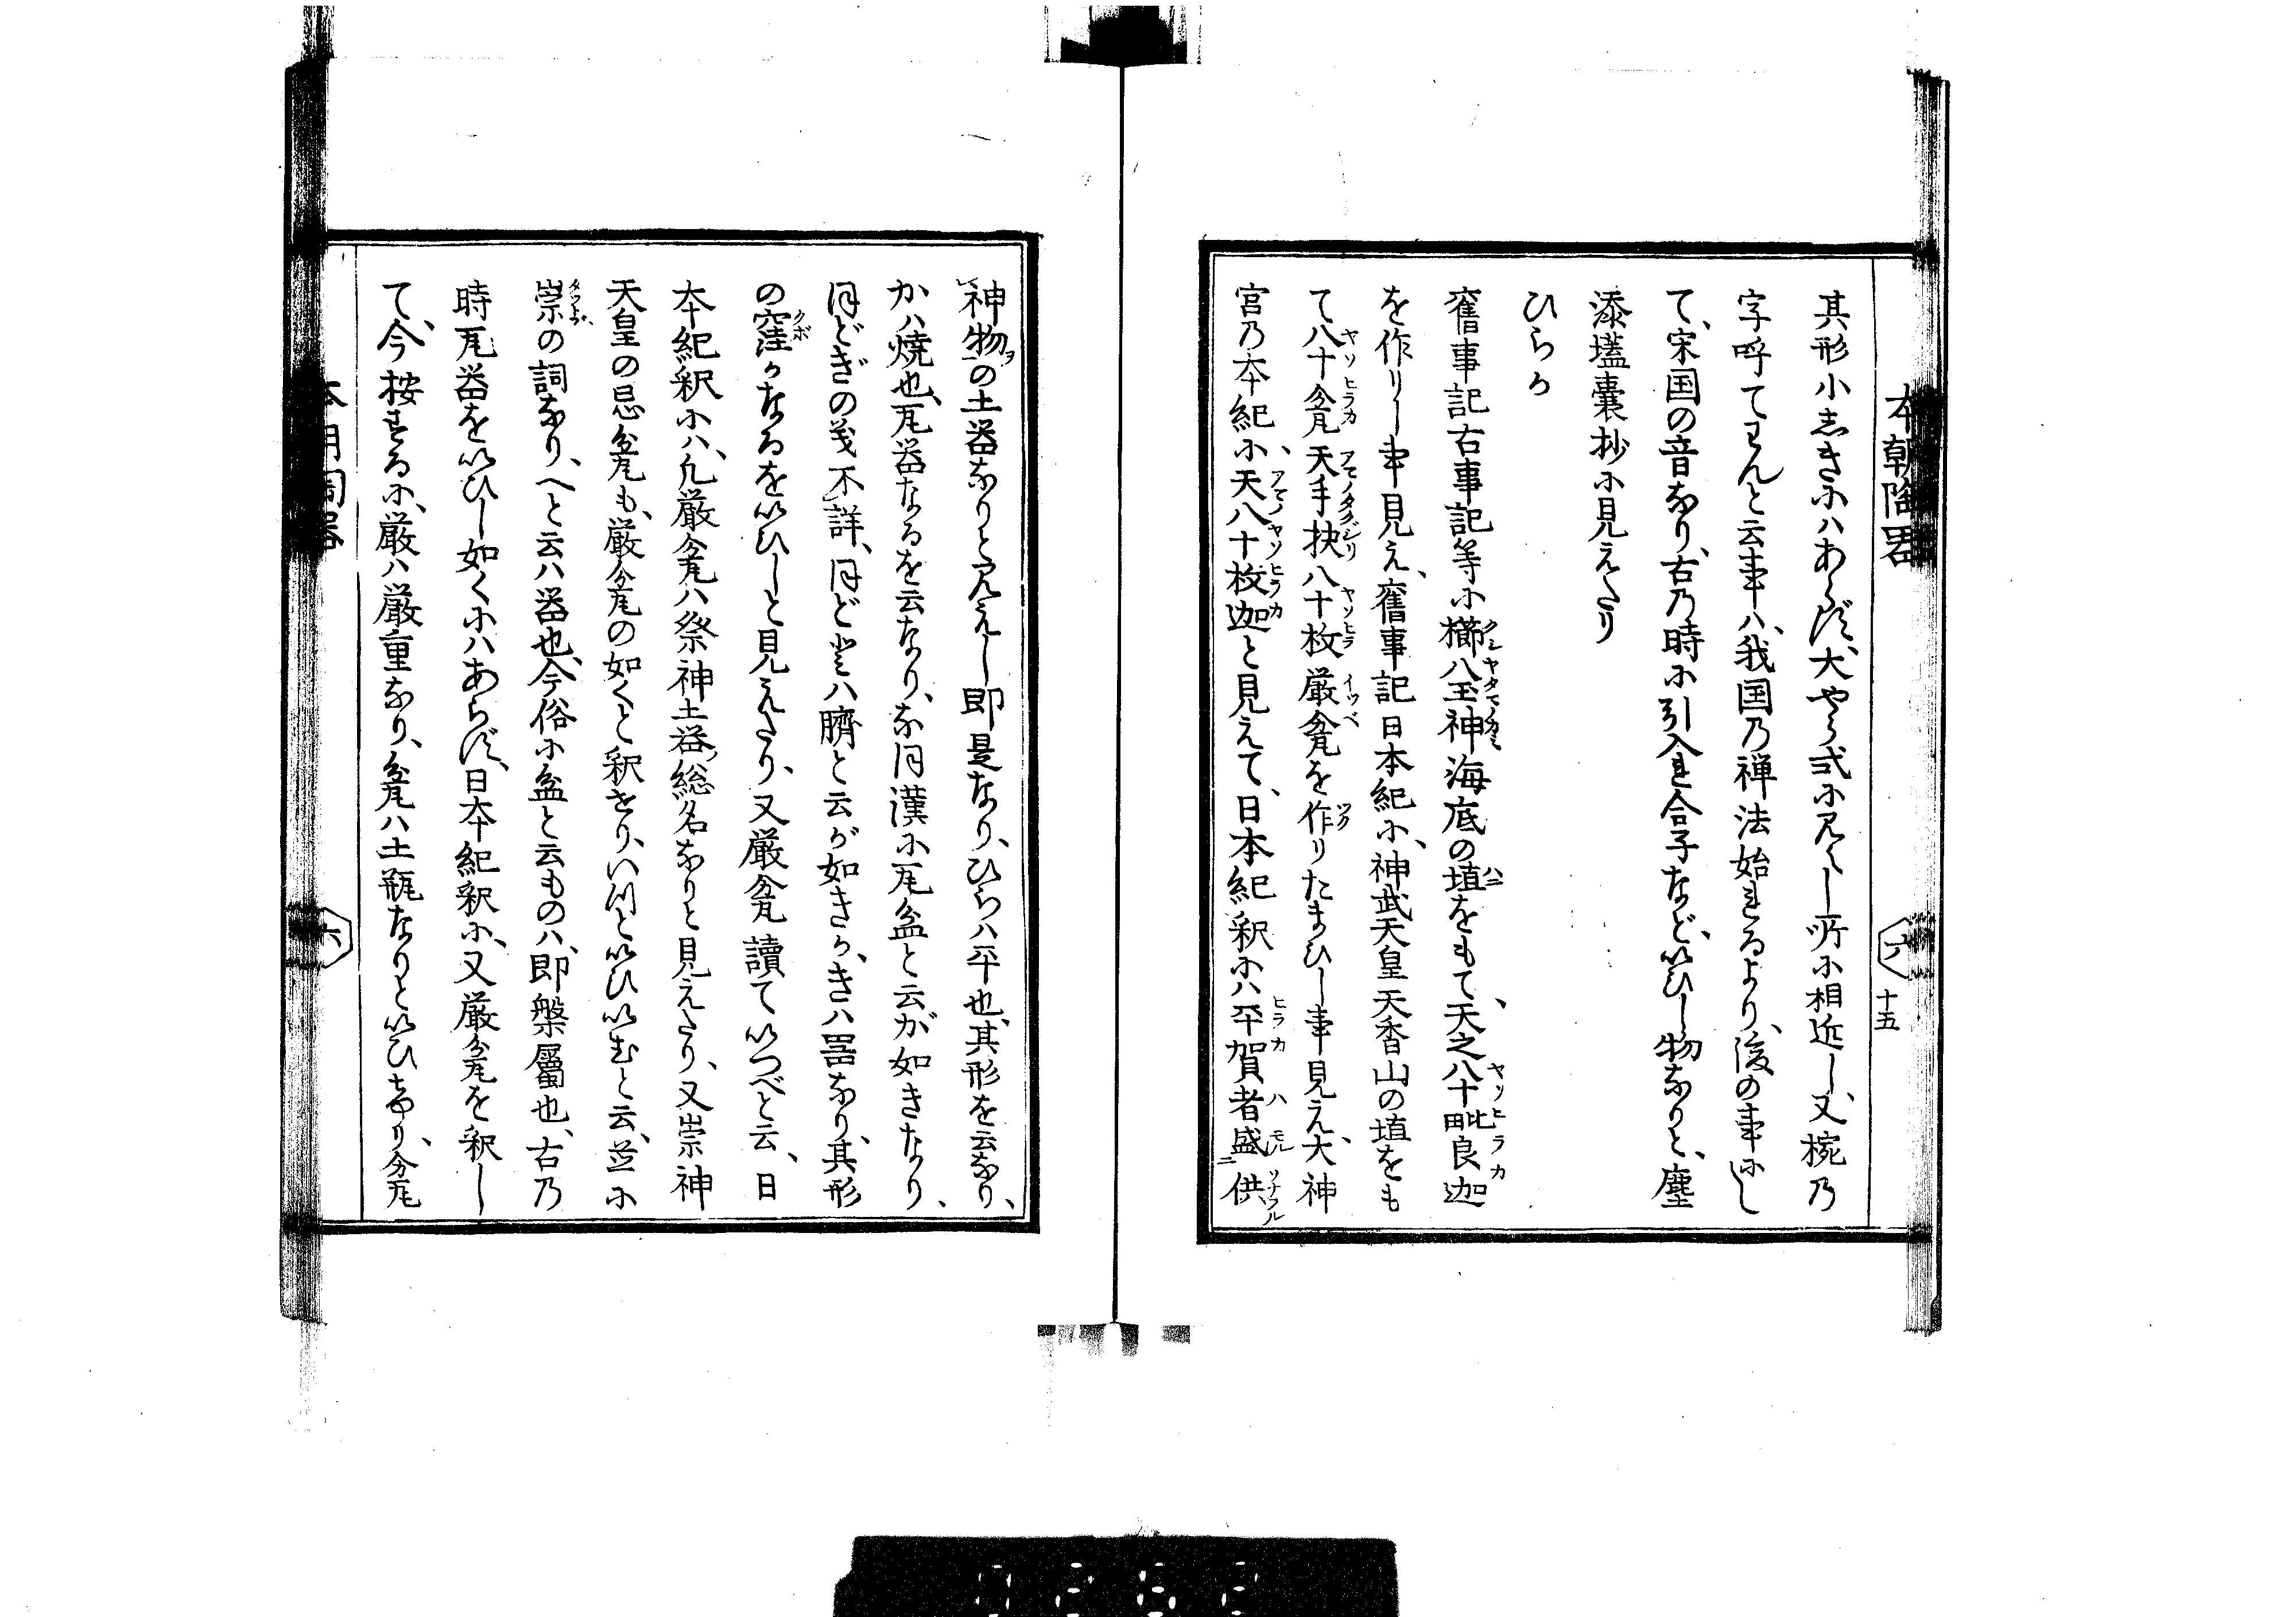 本朝陶器
六
十五
其形小しきにハあらず、大やう弐に見へし所に相近し、又椀乃
字呼てわんと云事ハ、我国乃禅法始れるより、後の事にし
て、宋国の音なり、古乃時に引入れ合子など、いひし物なりと、塵
添壒囊抄に見えたり
ひらか
舊事記古事記等に櫛八玉神海底の埴をもて、天之八十毗良迦
を作りし事見え、舊事記日本紀に、神武天皇天香山の埴をも
て八十瓮天手抉八十枚厳瓮を作りたまひし事見え、大神
宮乃本紀に、天八十枚迦と見えて、日本紀釈にハ平賀者盛供
神物の土器なりと見えし即是なり、ひらハ平也、其形を云なり、
かハ焼也、瓦器なるを云なり、な同漢に瓦盆と云が如きなり、
ほどぎの義不詳、ほどとハ臍と云が如きか、きハ器なり、其形
の窪かなるをいひしと見えたり、又厳瓮讀ていつべと云、日
本紀釈にハ、凡厳瓮ハ祭神土器総名なりと見えたり、又崇神
天皇の忌瓮も、厳瓮の如くと釈せり、いつといひいむと云、並に
崇の詞なり、へと云ハ器也、今俗に盆と云もの八、即槃屬也、古乃
時瓦器をいひし如くにハあらず、日本紀釈に、又厳瓮を釈し
て、今按ずるに、厳ハ厳重なり、瓮ハ土瓶なりといひけり、瓮
六